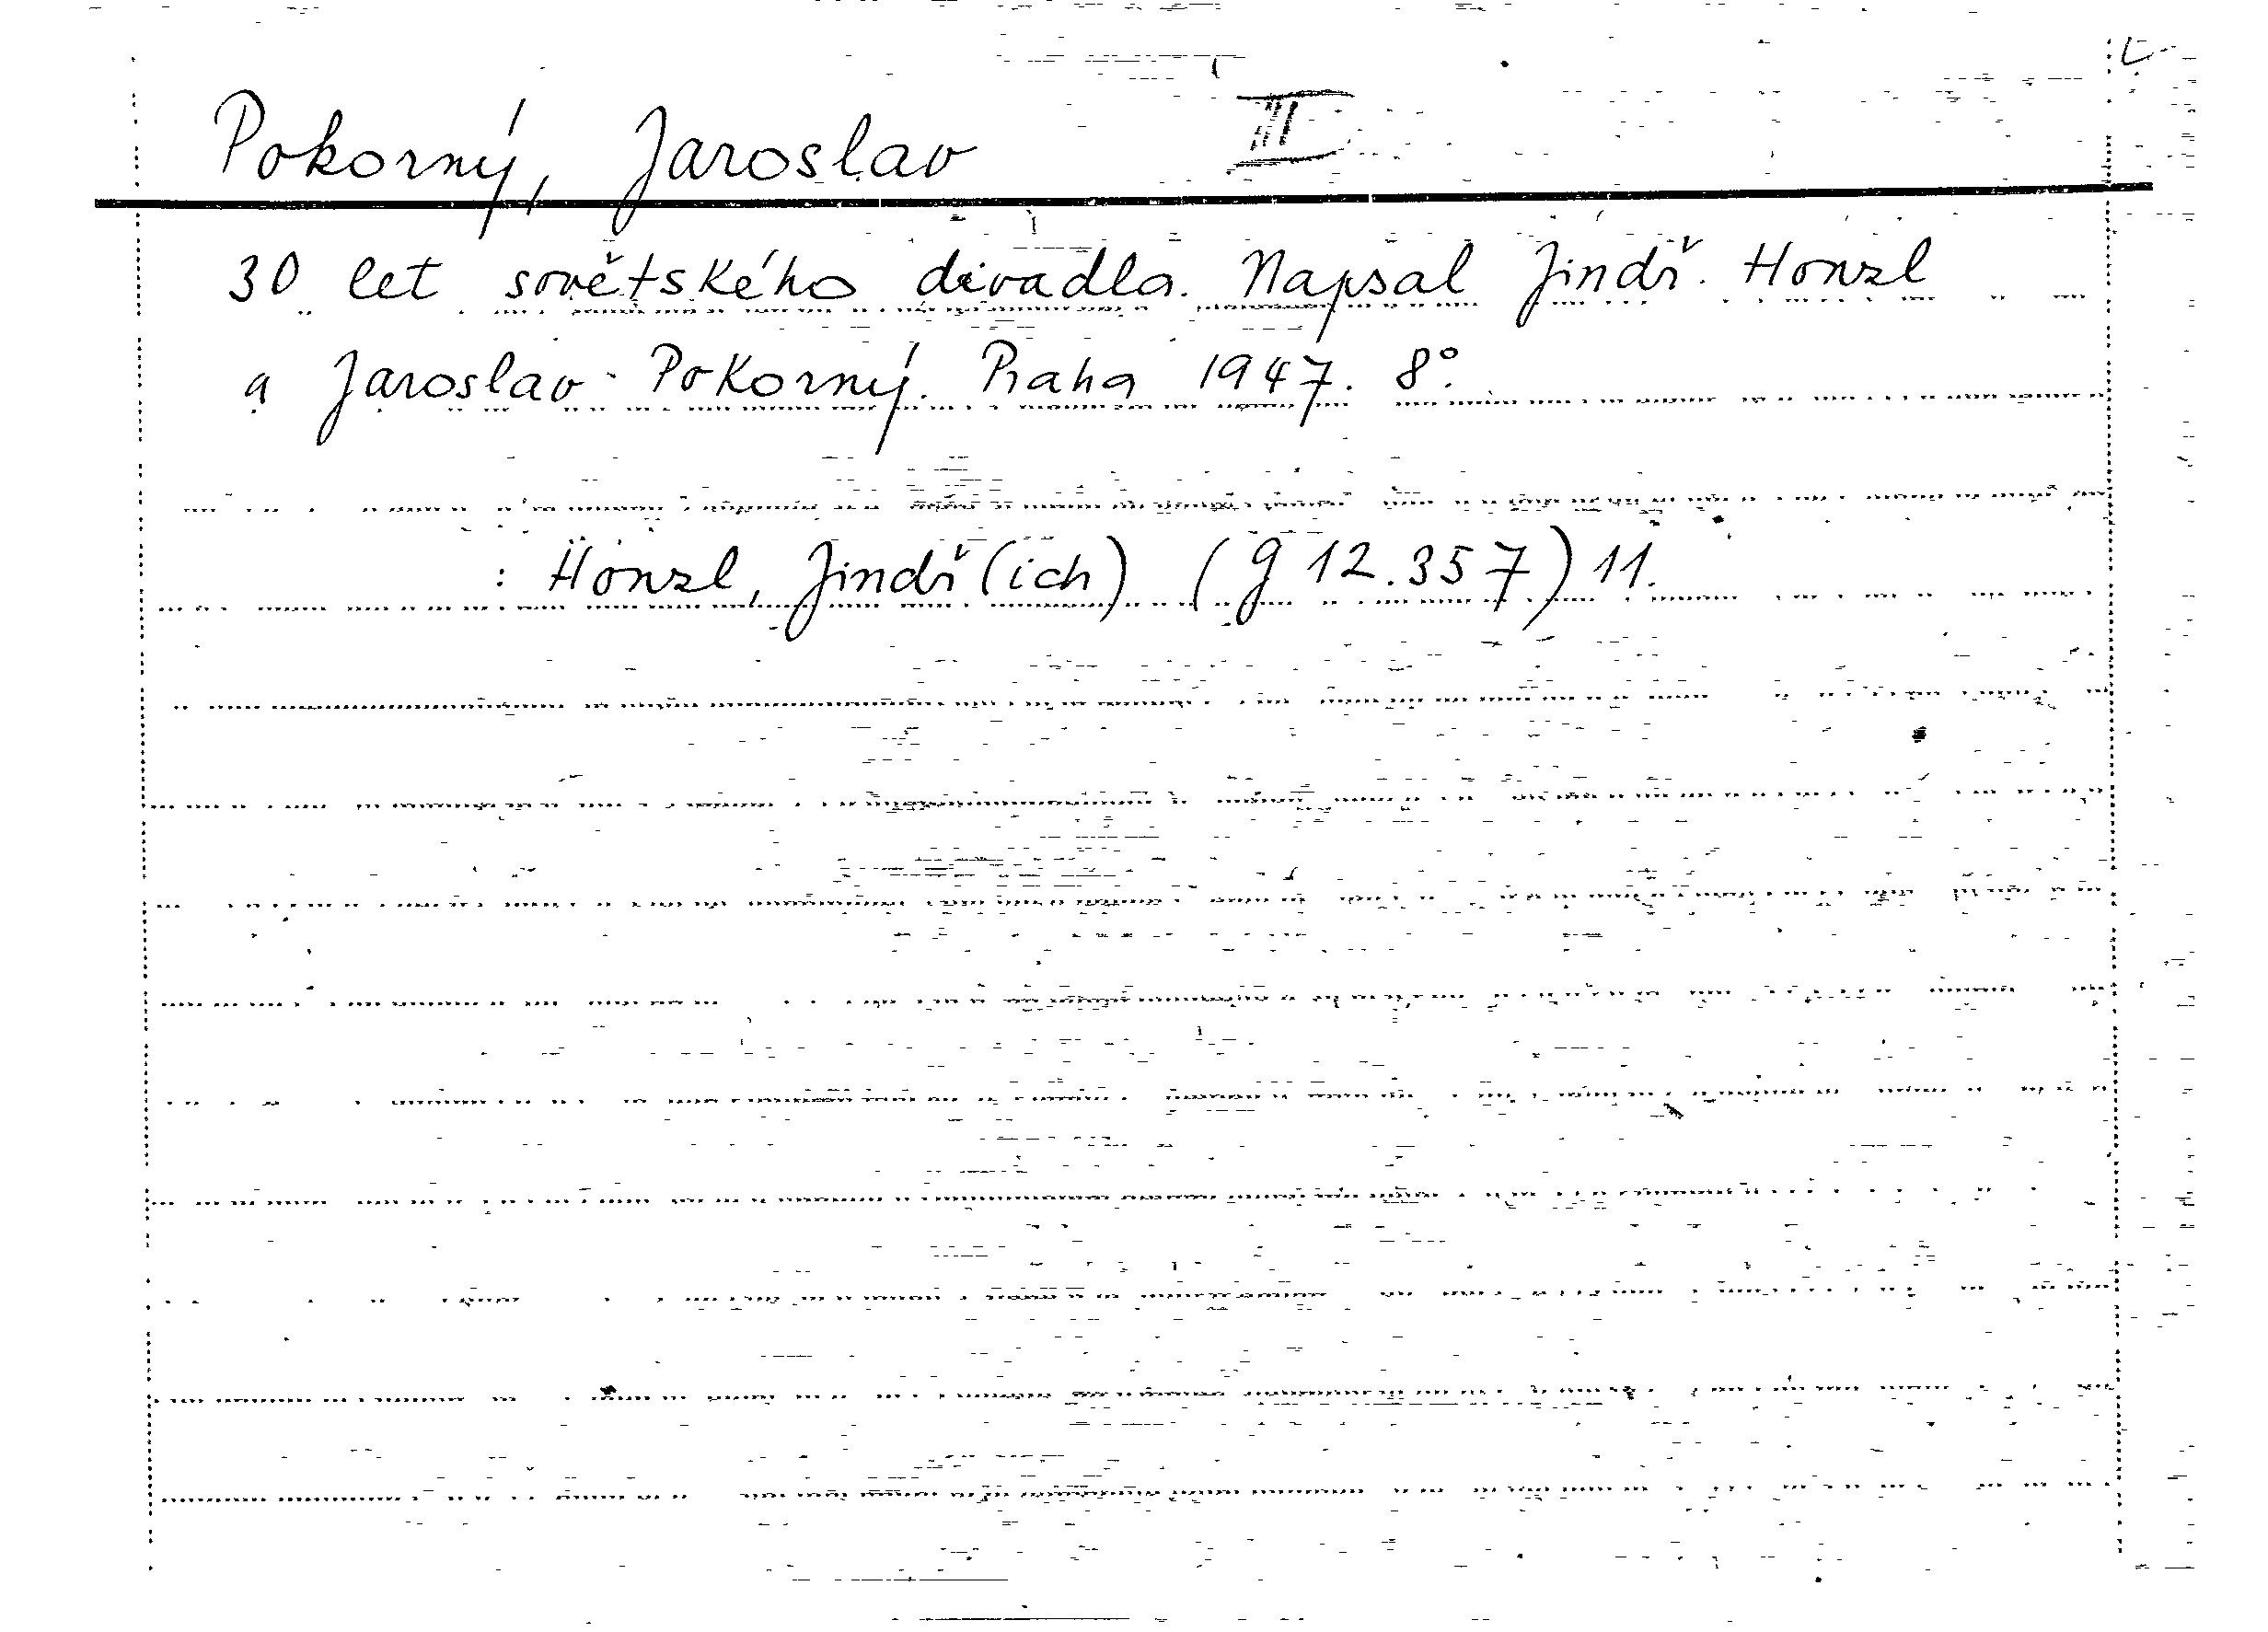 Pokorný, Jaroslav III
30 let sovětského divadla. Napsal Jindř. Honzl
a Jaroslav Pokorný. Praha 1947. 8°.
: Honzl, Jindř(ich) (g 12.357) 11.